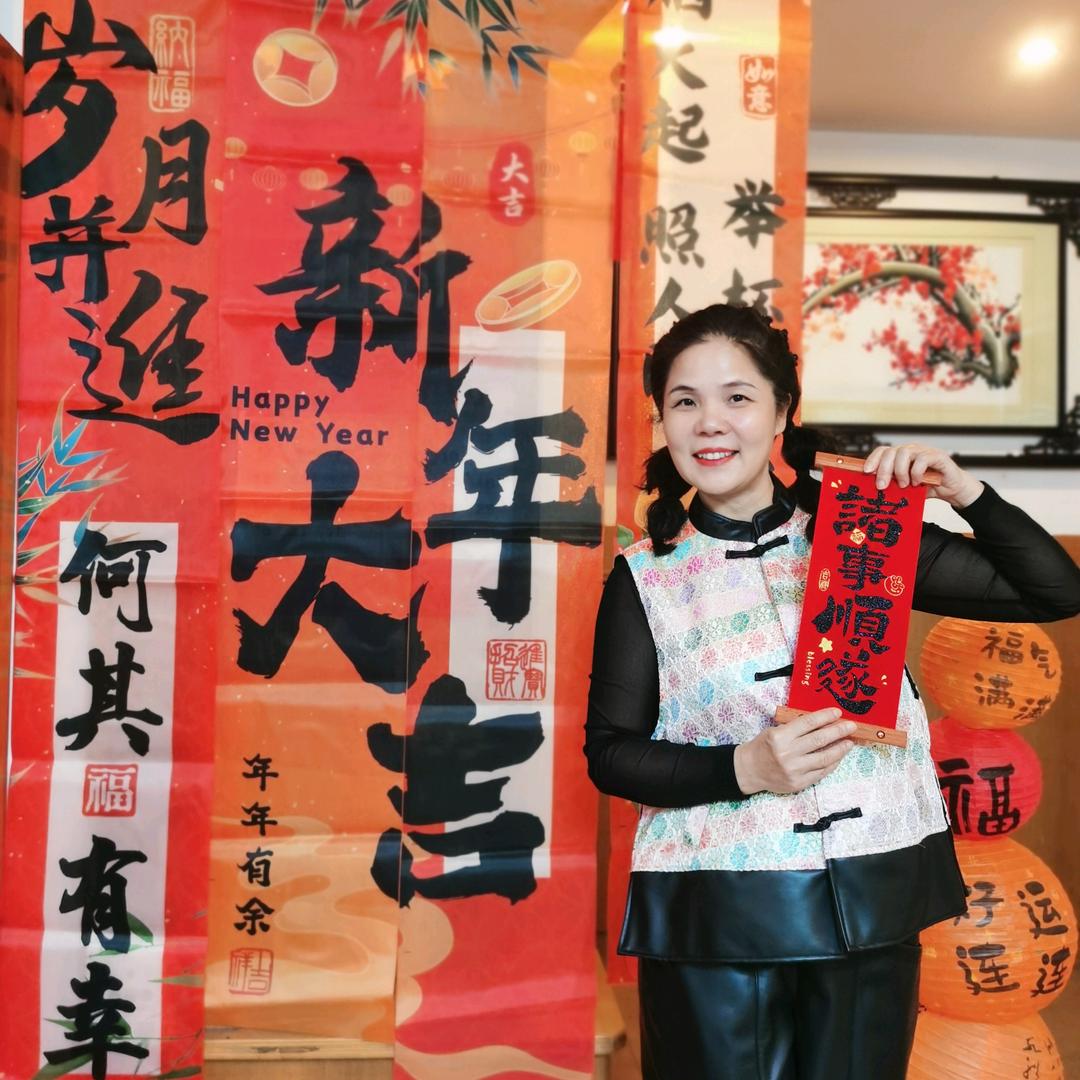 岁月并進
納福
何其
福
有幸
新年大吉
Happy
New Year
大吉
招財進寶
年年有余
吉祥
火起照人
如意
举杯
諸事順遂
blessing
福气满满
福
好运连连